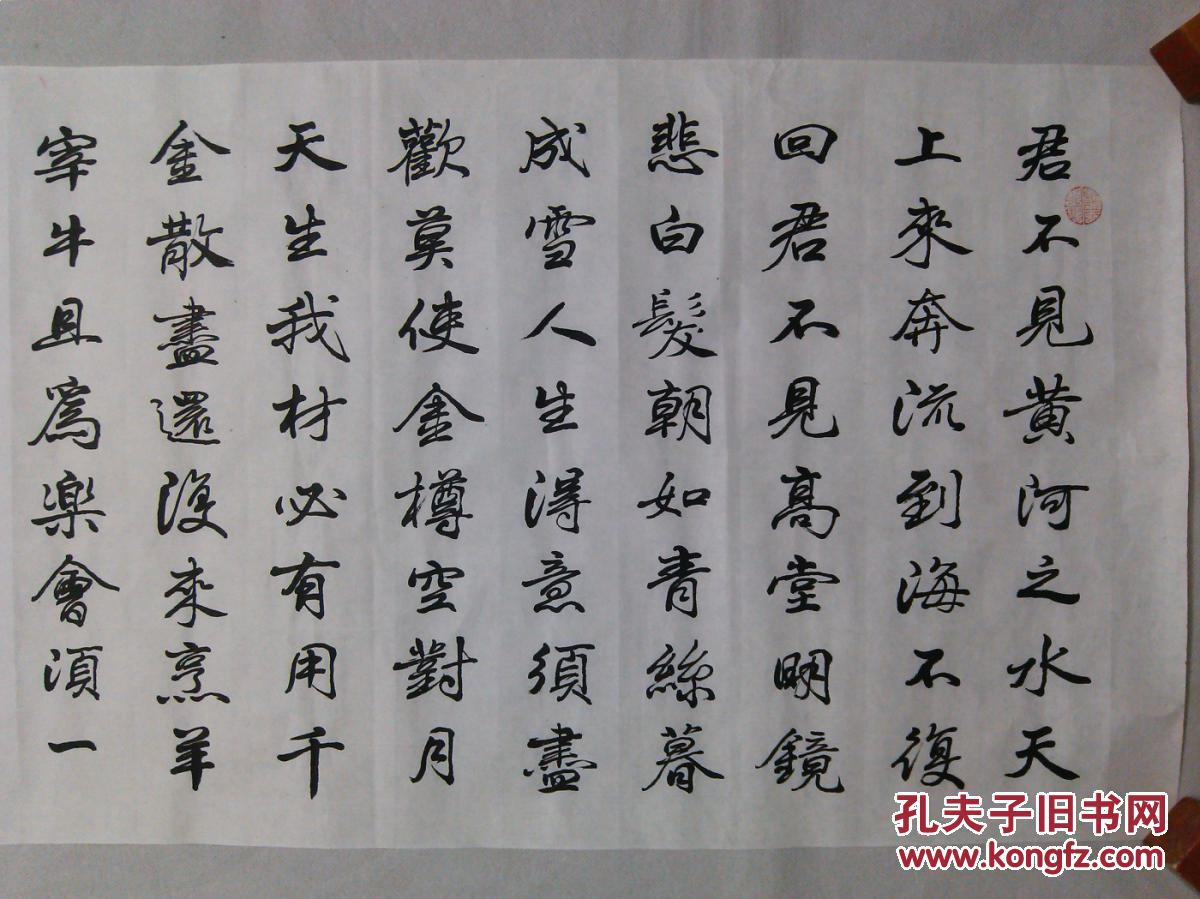 君不見黃河之水天
上來奔流到海不復
回君不見高堂明鏡
悲白髮朝如青絲暮
成雪人生得意須盡
歡莫使金樽空對月
天生我材必有用千
金散盡還復來烹羊
宰牛且為樂會須一
孔夫子旧书网
www.kongfz.com